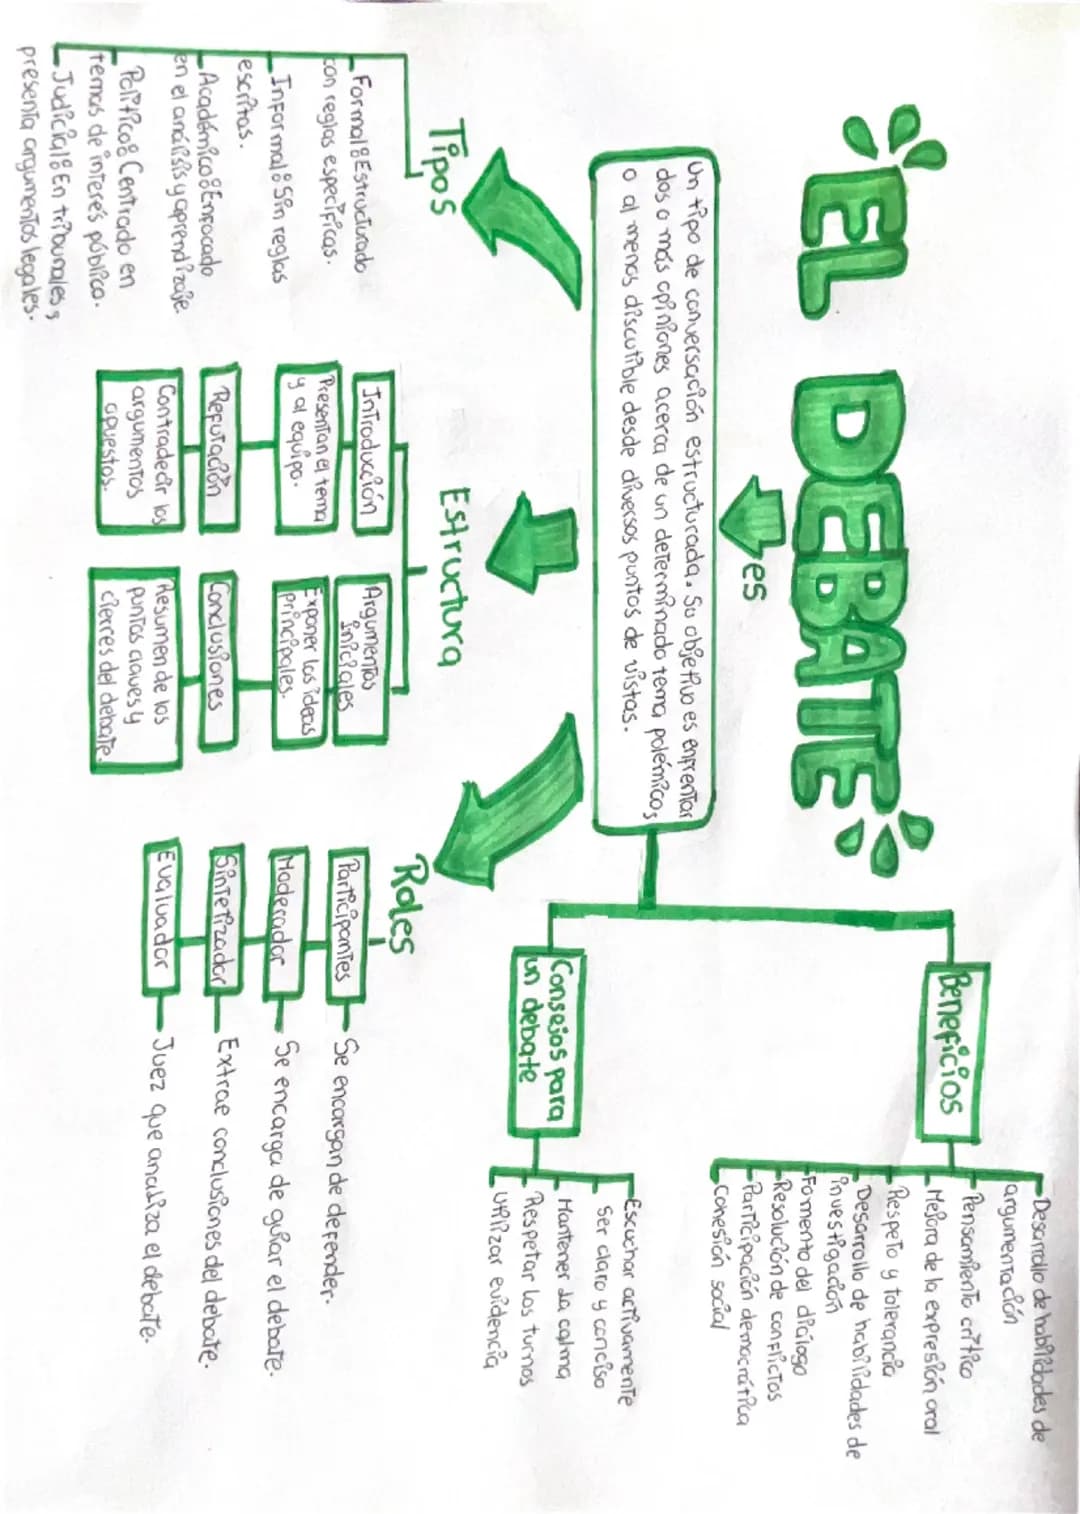 EL DEBATE
es
Un tipo de conversación estructurada. Su objetivo es enfrentar
dos o más opiniones acerca de un determinado tema polémicos
o al menos discutible desde diversos puntos de vistas.
Tipos
Formal: Estructurado
con reglas específicas.
Informal: Sin reglas
escritas.
Académico: Enfocado
en el análisis y aprendizaje.
Político: Centrado en
temas de interés público.
Judicial: En tribunales,
presenta argumentos legales.
Estructura
Introducción
Presentan el tema
y al equipo.
Refutación
Contradecir los
argumentos
opuestos.
Argumentos
iniciales
Exponer las ideas
principales.
Conclusiones
Resumen de los
puntos claves y
cierres del debate.
Roles
Participantes
Se encargan de defender.
Moderador
Se encarga de guiar el debate.
Sintetizador
Extrae conclusiones del debate.
Evaluador
Juez que analiza el debate.
Beneficios
Desarrollo de habilidades de
argumentación
Pensamiento crítico
Mejora de la expresión oral
Respeto y tolerancia
Desarrollo de habilidades de
investigación
Fomento del diálogo
Resolución de conflictos
Participación democrática
Cohesión social
Consejos para
un debate
Escuchar activamente
Ser claro y conciso
Mantener la calma
Respetar los turnos
Utilizar evidencia